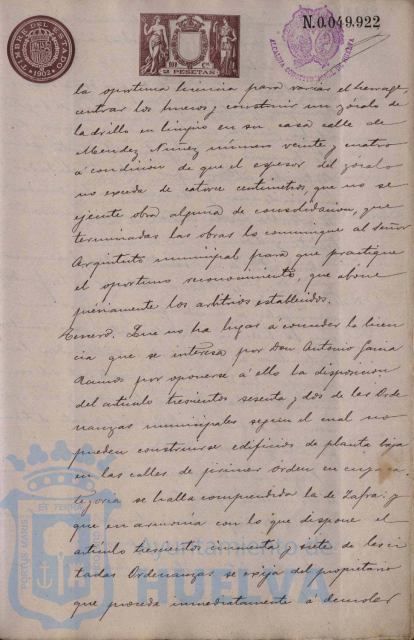 TIMBRE DEL ESTADO
1902
2 PESETAS
N.0.049.922
la oportuna licencia para variar el herrage,
centrar los huecos y construir un zócalo de
ladrillo en limpio en su casa calle de
Mendez Nuñez número veinte y cuatro
á condicion de que el espesor del zócalo
no exceda de catorce centimetros, que no se
ejecute obra alguna de consolidacion, que
terminadas las obras lo comunique al Señor
Arquitecto municipal para que practique
el oportuno reconocimiento, que abone
préviamente los arbitrios establecidos.
Tercero. Que no ha lugar á conceder la licen
cia que se interesa por Don Antonio Garcia
Ramos por oponerse á ello la disposicion
del articulo trescientos sesenta y dos de las Orde
nanzas municipales segun el cual no
pueden construirse edificios de planta baja
en las calles de primer orden en cuya ca
tegoria se halla comprendida la de Zafra: y
que en armonía con lo que dispone el
artículo trescientos cincuenta y siete de las ci
tadas Ordenanzas se exija del propietario
que proceda inmediatamente á demoler
Ayuntamiento de
HUELVA